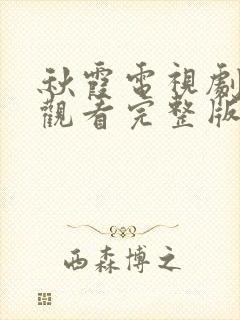 秋霞電視劇
觀看完整版
西森博之